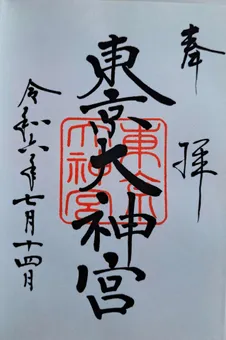 奉拝
東京大神宮
東京大神宮
令和六年七月十四日